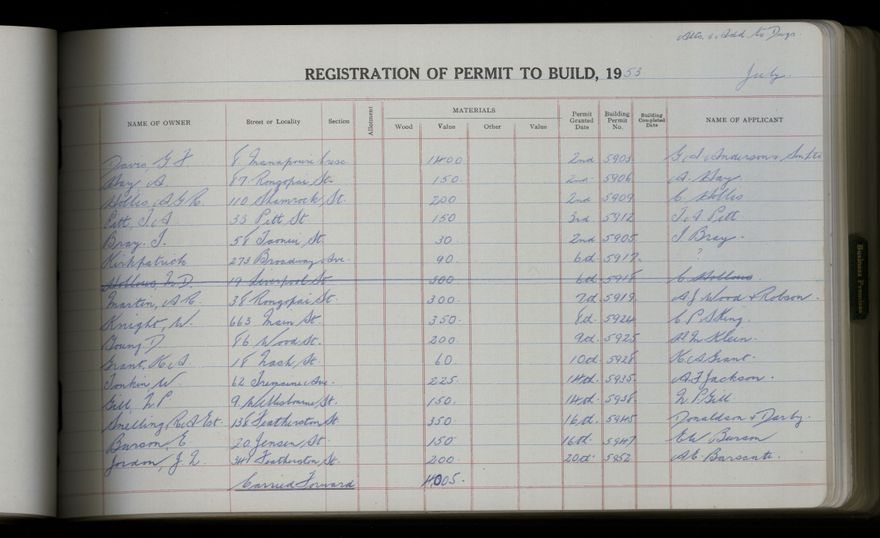 Alts. & Add. to Dwgs.
REGISTRATION OF PERMIT TO BUILD, 1953
July
NAME OF OWNER Street or Locality Section Allotment MATERIALS Wood Value Other Value Permit Granted Date Building Permit No. Building Completed Date NAME OF APPLICANT
Davis, G F 8 Manapouri Cresc 1400 2nd 5903 G. A. Anderson &
Hay, A 87 Rongopai St. 150 2nd 5906 A. Hay
Hollis A G C. 110 Shamrock St. 200 2nd 5909 C Hollis
Pitt, J. A 33 Pitt St 150 3rd 5912 J. A Pitt
Bray. J. 58 Taonui St 30 2nd 5905 J Bray
Kirkpatrick 273 Broadway Ave 90 6th 5917 ?
Hollows, N. D. 19 Liverpool St 500 6th 5918 C Hollows
Martin, A C. 38 Rongopai St 300 7th 5919 A J Wood & Robson.
Knight, W. 663 Main St. 350 8th 5924 C P S King.
Young D. 86 Wood St. 200 9th 5925 Klein.
Grant, K. A. 18 Nash St. 60 10th 5928 K. A Grant.
Tonkin W 62 Tremaine Ave. 225 14th 5935 A J Jackson.
Gill N P 9 Melbourne St. 150 14th 5938 N. P Gill
Snelling, Est. 138 Featherston St 350 16th 5945 Donaldson & Darby.
Burson, E 20 Jensen St 150 16th 5947 E W Burson
Jordon, J. N. 341 Featherston St. 200 20th 5952 A C Bursante.
Carried Forward 4005.
Business Premises